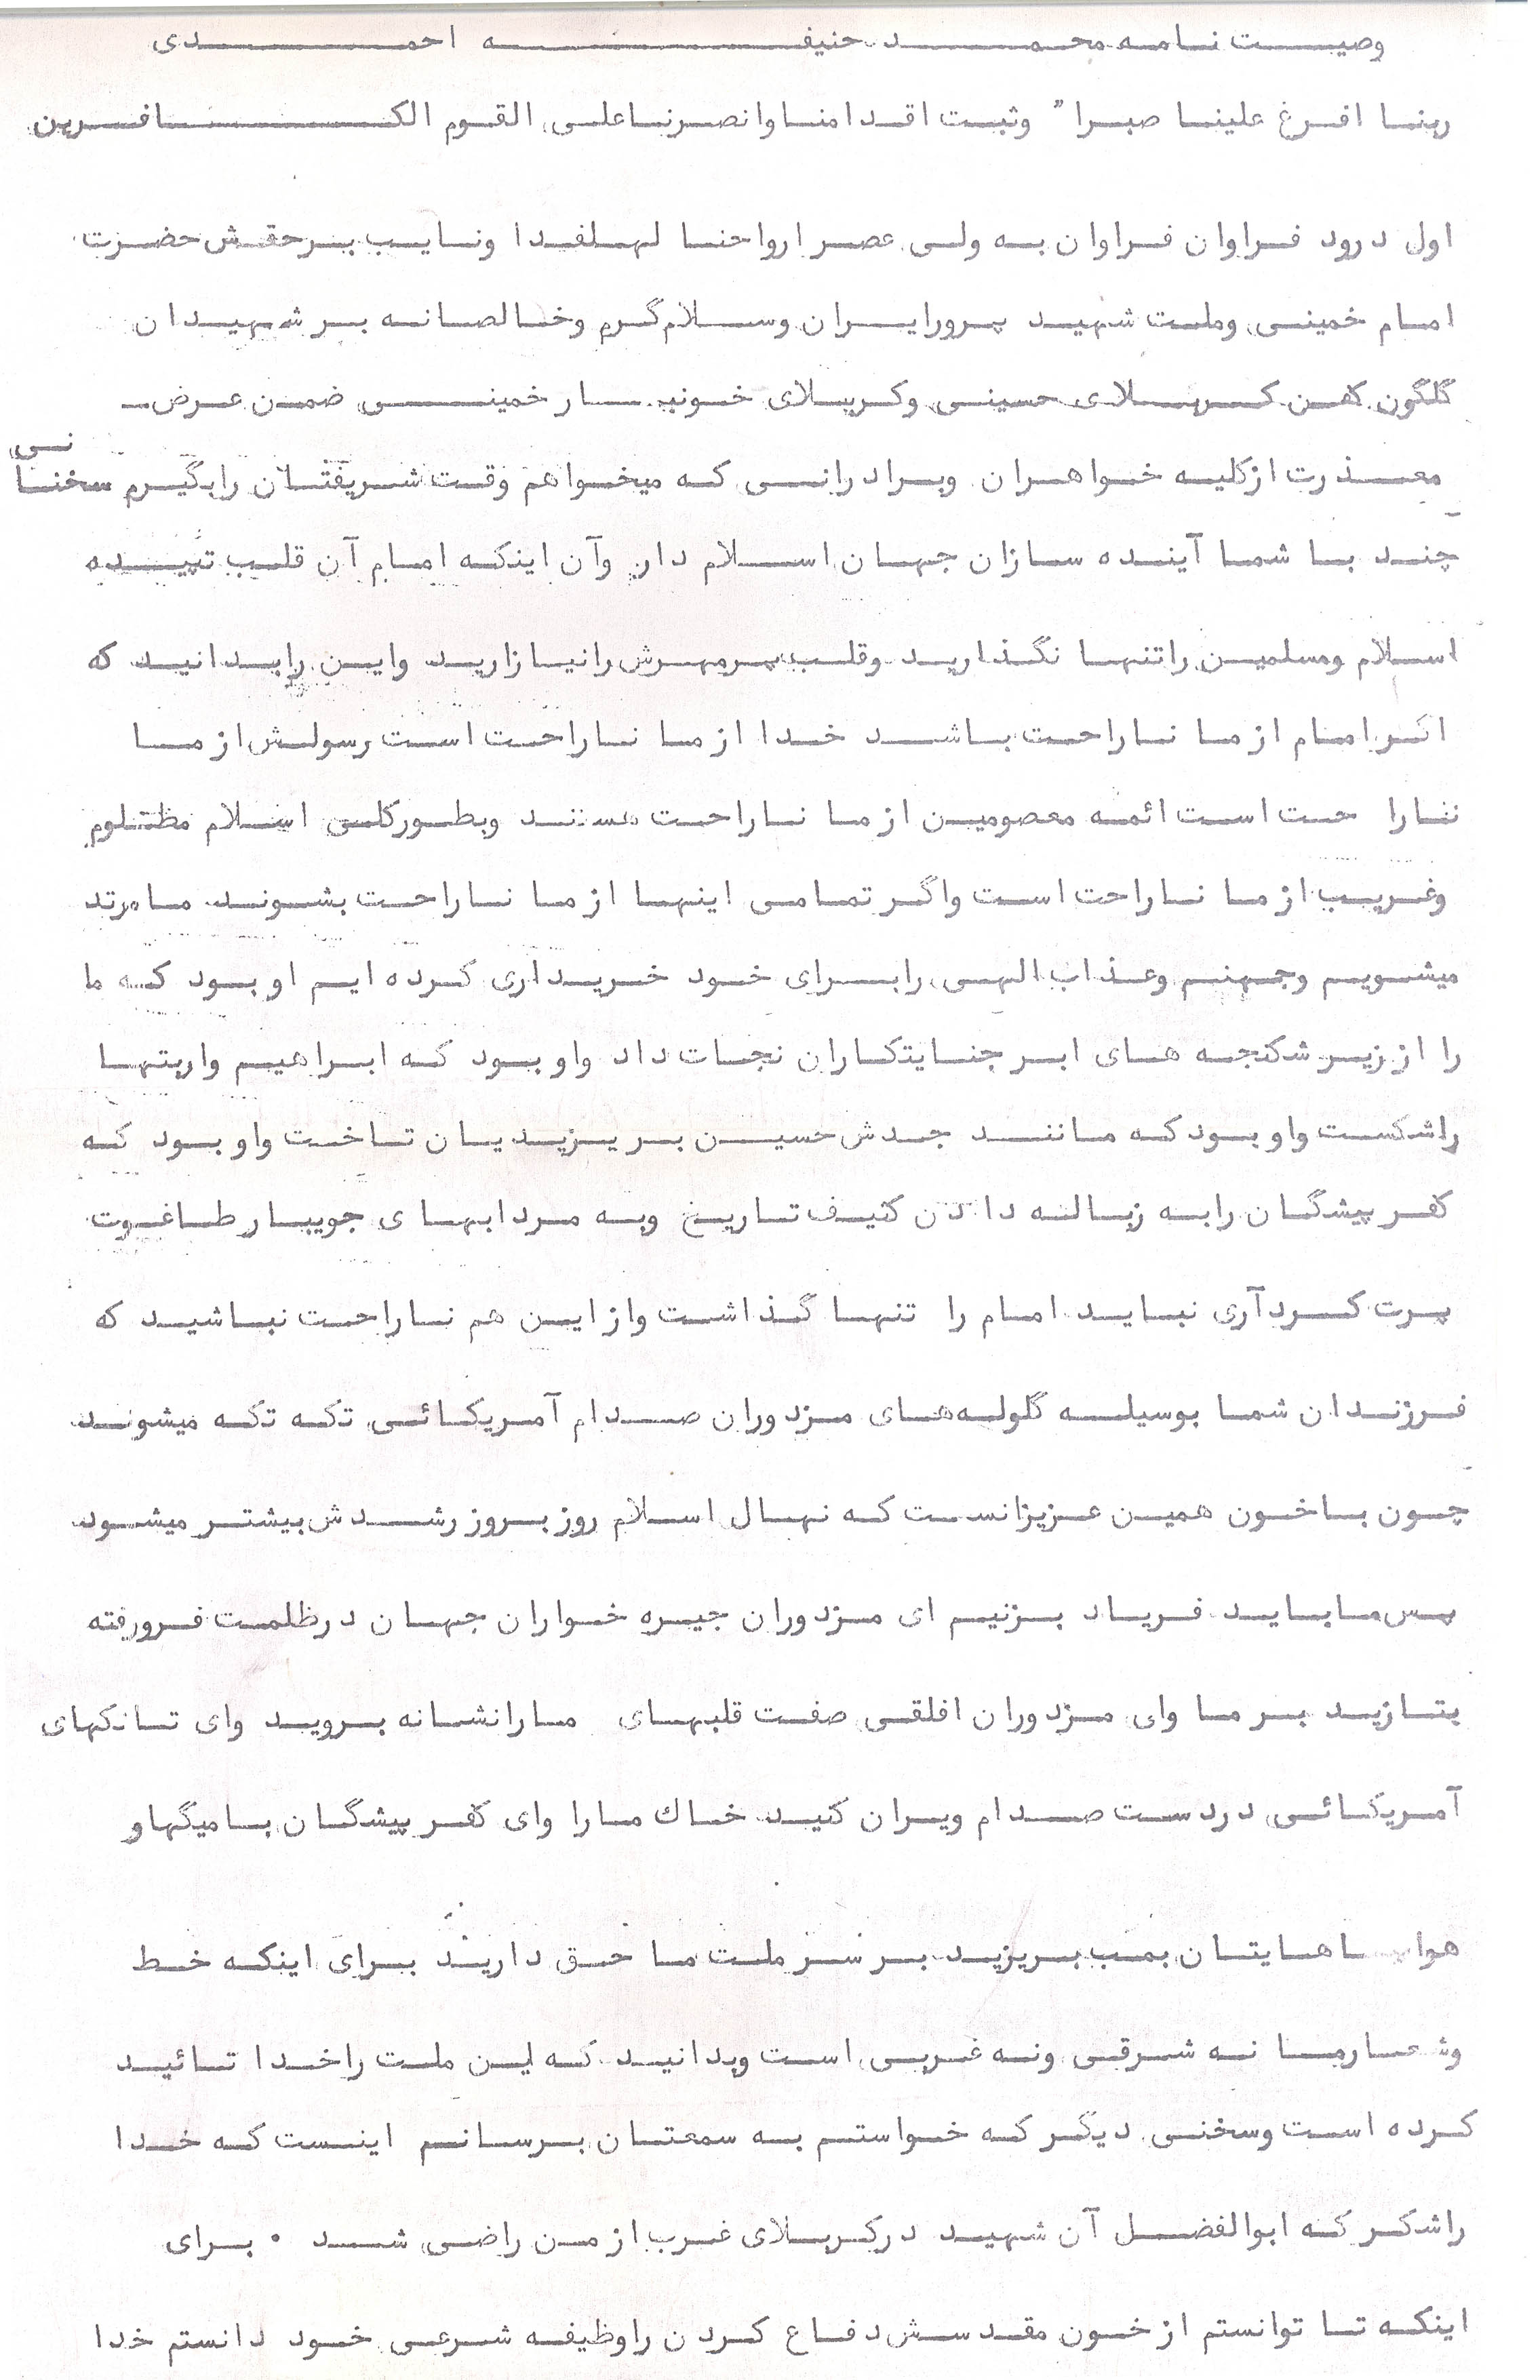 وصیت نامه محمد حنیفه احمدی
ربنا افرغ علینا صبرا" وثبت اقدامنا وانصرنا علی القوم الکافرین
اول درود فراوان فراوان به ولی عصر ارواحنا لهلفدا ونایب برحقش حضرت
امام خمینی وملت شهید پرور ایران وسلام گرم وخالصانه بر شهیدان
گلگون کفن کربلای حسینی وکربلای خونبار خمینی ضمن عرض
معذرت از کلیه خواهران وبرادرانی که میخواهم وقت شریفتان رابگیرم سخنانی
چند با شما آینده سازان جهان اسلام دارم وآن اینکه امام آن قلب تپیده
اسلام ومسلمین راتنها نگذارید وقلب پرمهرش رانیازارید واین رابدانید که
اگر امام از ما ناراحت باشد خدا از ما ناراحت است رسولش از ما
ناراحت است ائمه معصومین از ما ناراحت هستند وبطورکلی اسلام مظلوم
وغریب از ما ناراحت است واگر تمامی اینها از ما ناراحت بشوند ما مرتد
میشویم وجهنم وعذاب الهی رابرای خود خریداری کرده ایم او بود که ما
را از زیر شکنجه های ابر جنایتکاران نجات داد واو بود که ابراهیم واربتها
راشکست واو بود که مانند جدش حسین بر یزیدیان تاخت واو بود که
کفر پیشگان رابه زباله دادن کثیف تاریخ وبه مردابهای جویبار طاغوت
پرت کرد آری نباید امام را تنها گذاشت واز این هم ناراحت نباشید که
فرزندان شما بوسیله گلوله‌های مزدوران صدام آمریکائی تکه تکه میشوند
چون باخون همین عزیزانست که نهال اسلام روز بروز رشدش بیشتر میشود
پس ما باید فریاد بزنیم ای مزدوران جیره خواران جهان درظلمت فرورفته
بتازید بر ما وای مزدوران افلقی صفت قلبهای مارانشانه بروید وای تانکهای
آمریکائی دردست صدام ویران کنید خاك مارا وای کفر پیشگان بامیگهاو
هواپیماهایتان بمب بریزید بر سر ملت ما حق دارید برای اینکه خط
وشعارما نه شرقی ونه غربی است وبدانید که این ملت راخدا تائید
کرده است وسخنی دیگر که خواستم به سمعتان برسانم اینست که خدا
راشکر که ابوالفضل آن شهید درکربلای غرب از من راضی شد . برای
اینکه تا توانستم از خون مقدسش دفاع کردن راوظیفه شرعی خود دانستم خدا